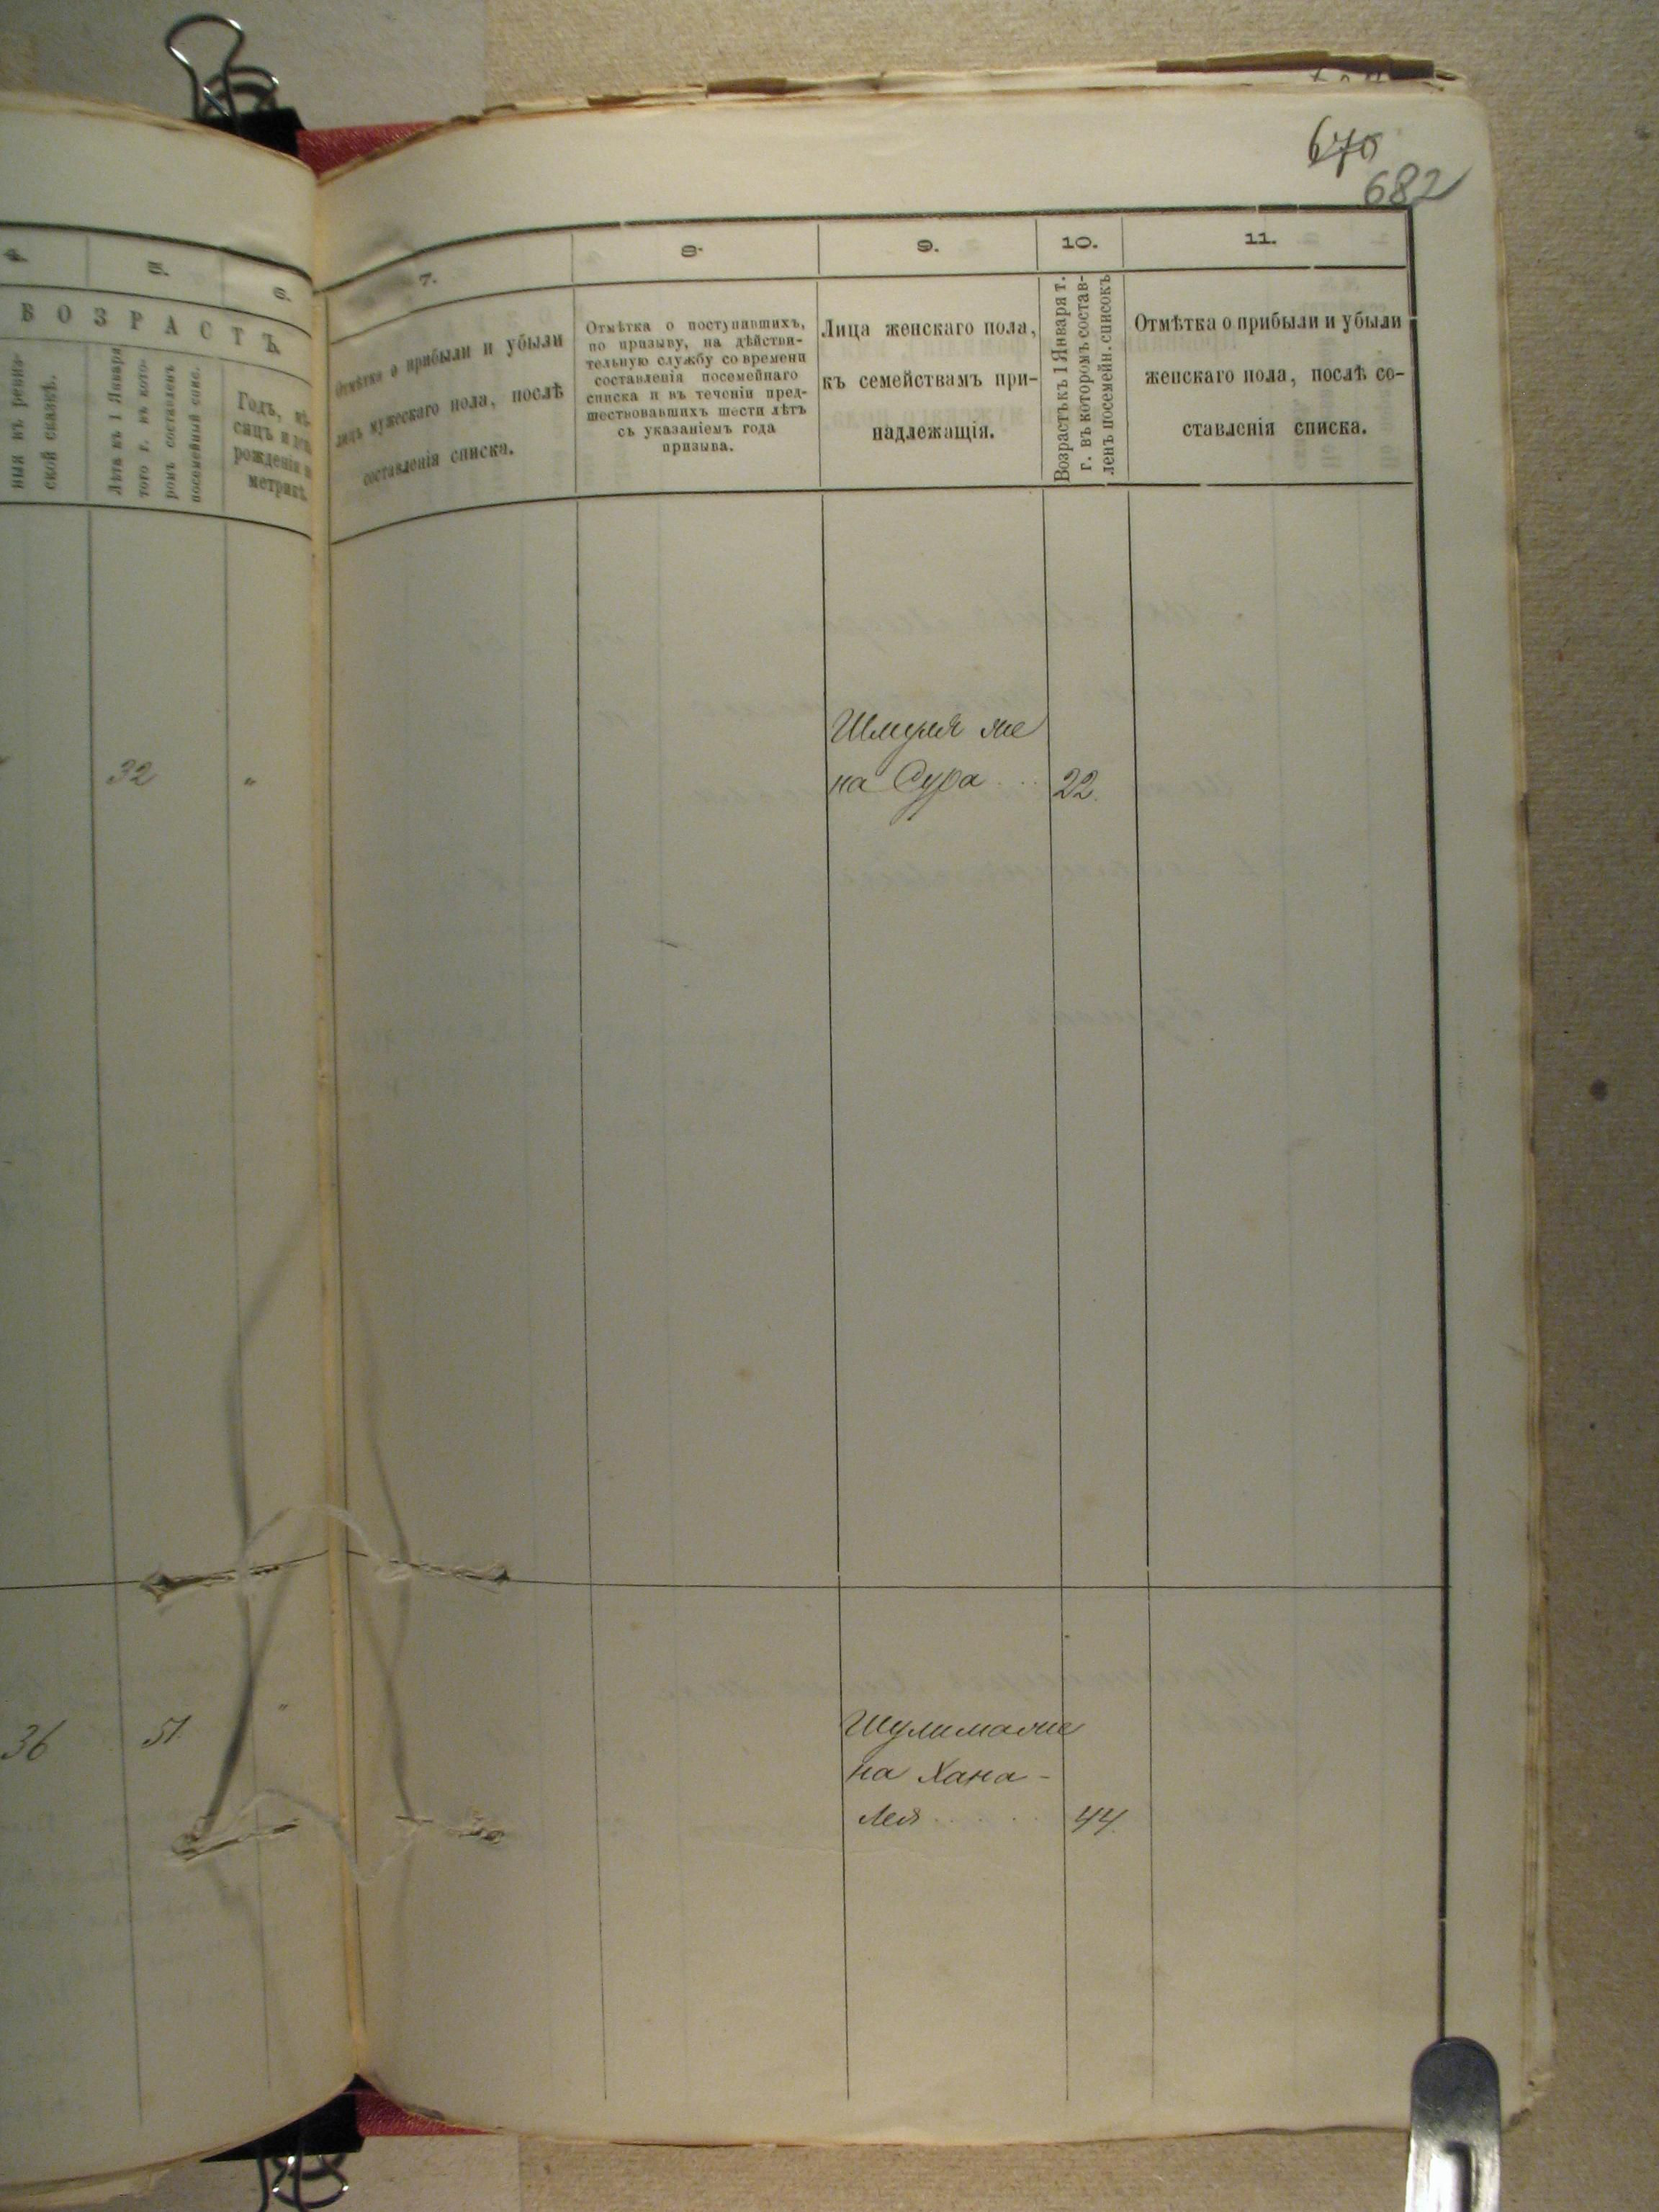 670
682
4. 5. 6.
ВОЗРАСТЪ.
ныя въ ревиз-
ской сказкѣ.
Лѣта къ 1 Января
того г. въ кото-
ромъ составленъ
посемейный спис.
Годъ, мѣ-
сяцъ и день
рожденія и
метрикѣ.
32 "
36 51. "
7. 8. 9. 10. 11.
Отмѣтка о прибыли и убыли
лицъ мужескаго пола, послѣ
составленія списка.
Отмѣтка о поступившихъ,
по призыву, на дѣйстви-
тельную службу со времени
составленія посемейнаго
списка и въ теченіи пред-
шествовавшихъ шести лѣтъ
съ указаніемъ года
призыва.
Лица женскаго пола,
къ семействамъ при-
надлежащія.
Возрастъ къ 1 Января т.
г. въ которомъ состав-
ленъ посемейн. списокъ
Отмѣтка о прибыли и убыли
женскаго пола, послѣ со-
ставленія списка.
Шмуля же
на Сура . . . 22.
Шулима же
на Хана-
Лея . . . . . 44.